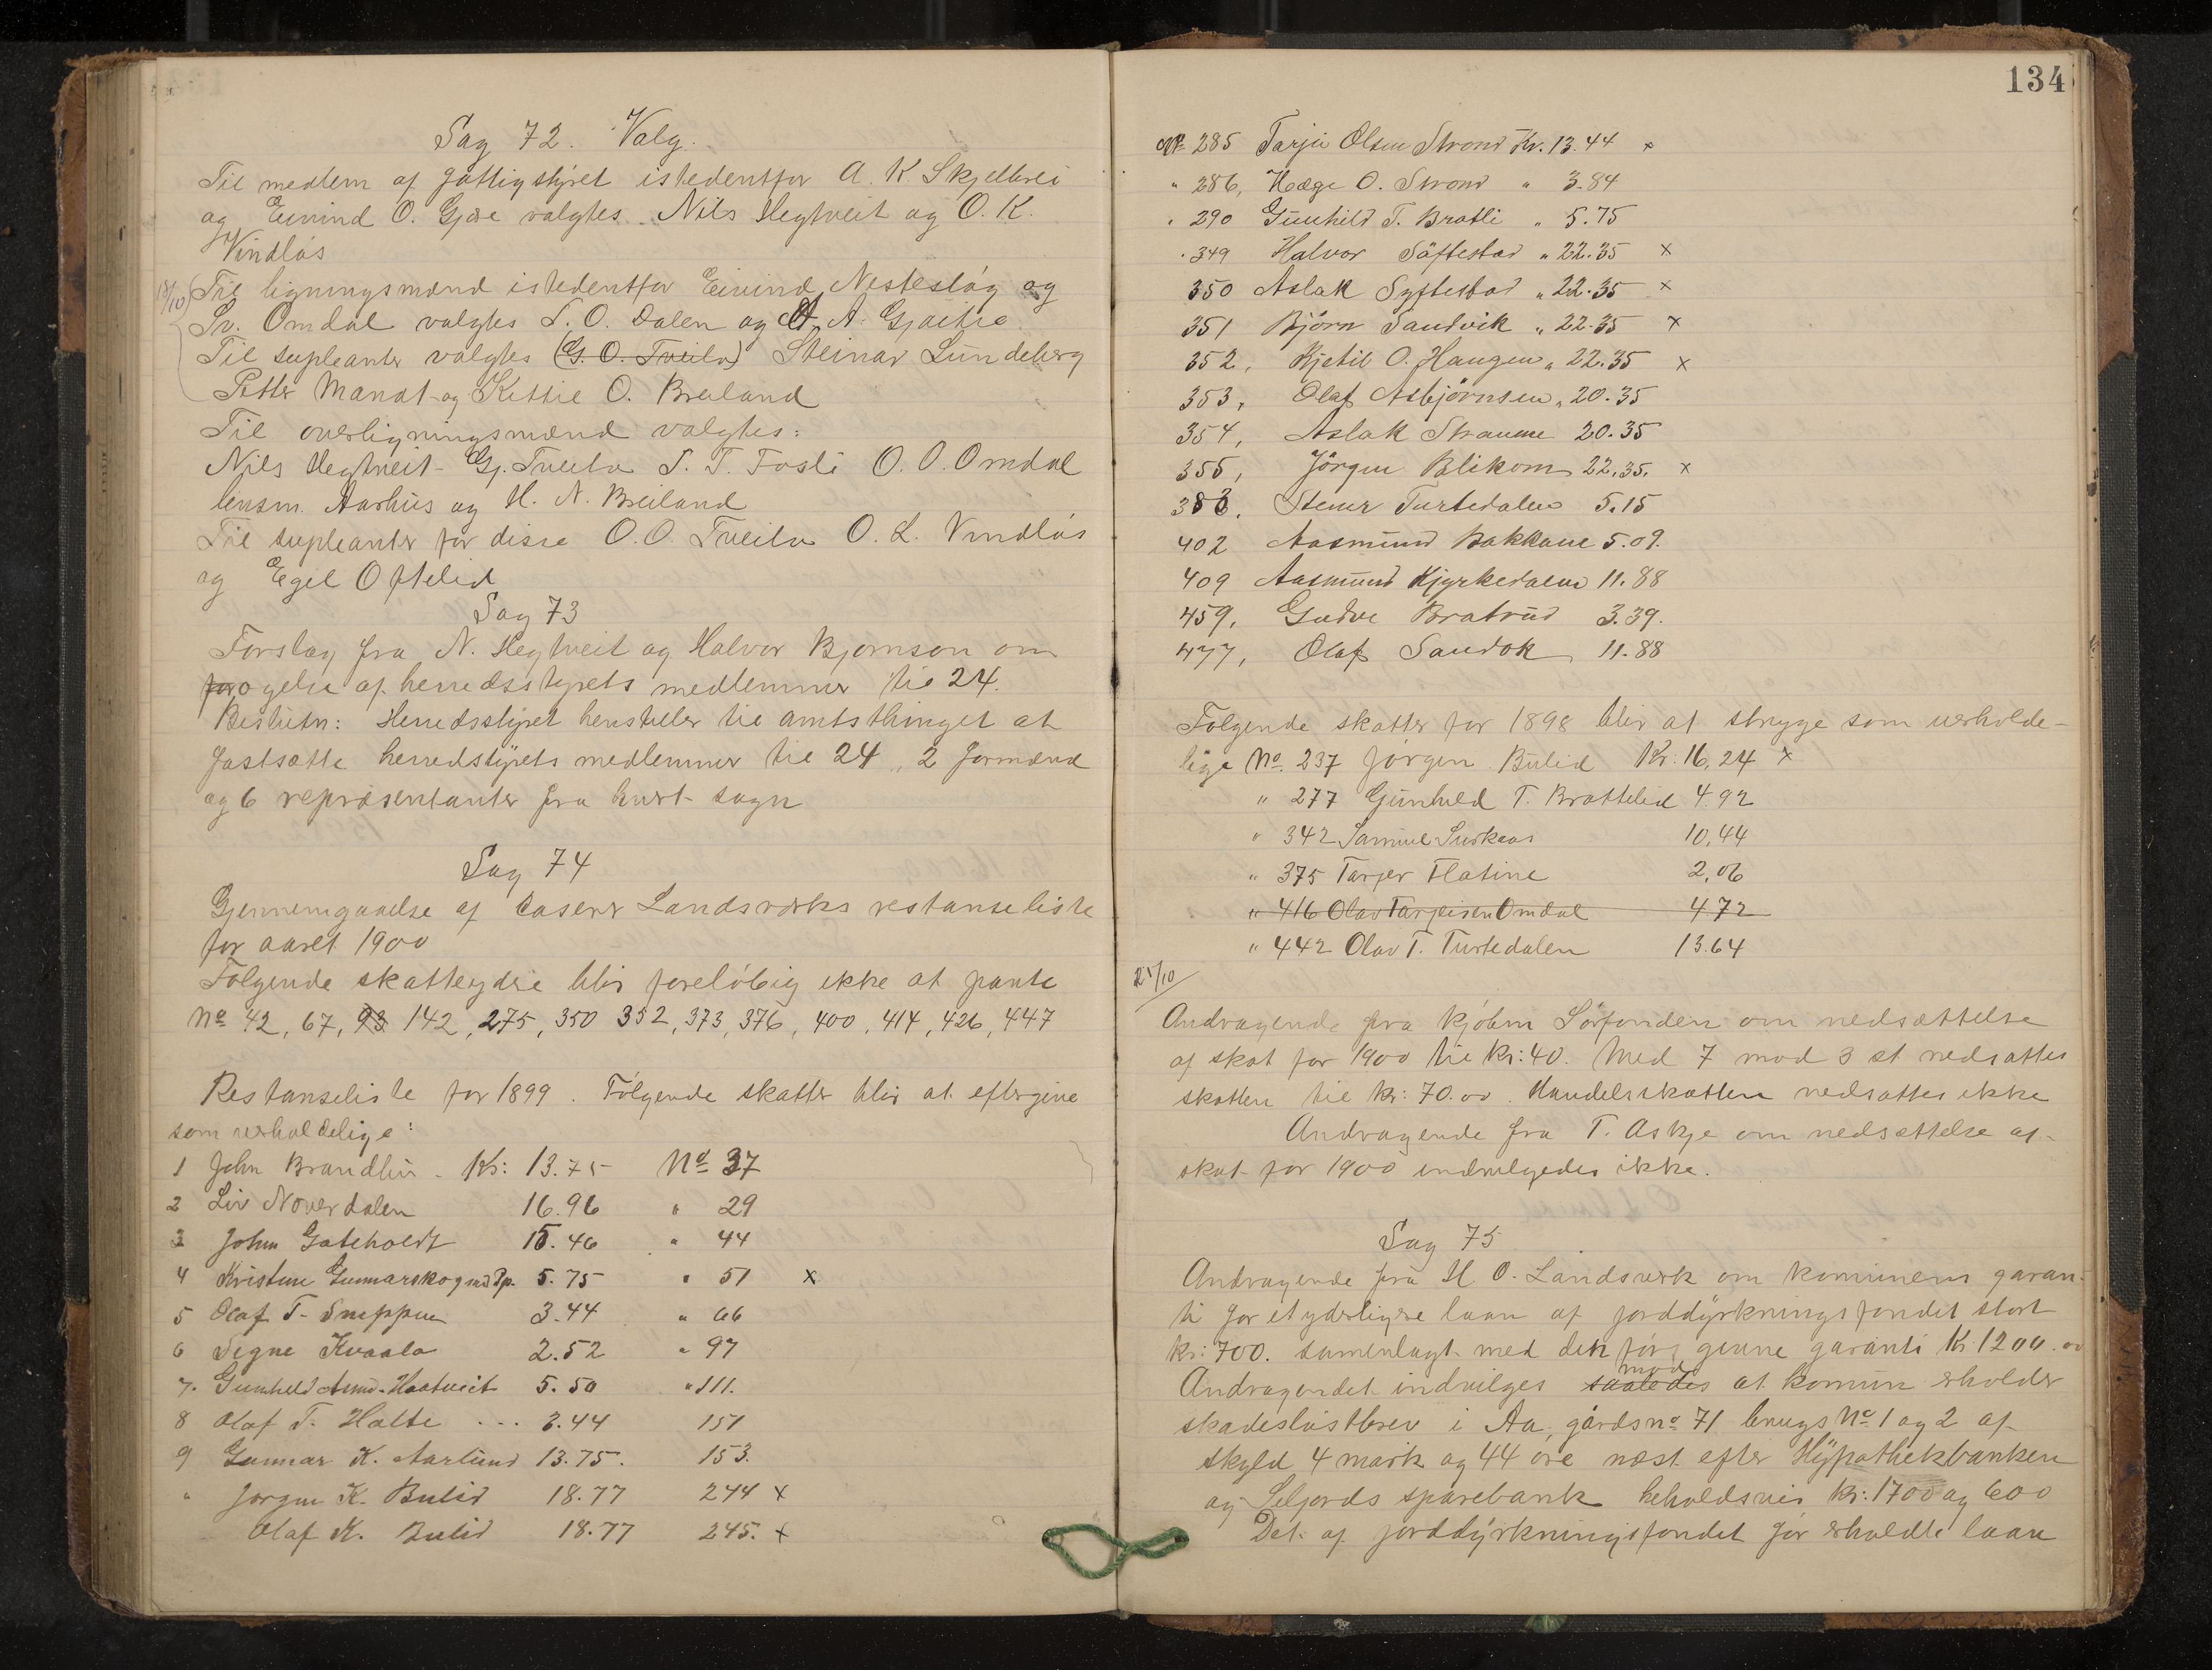 Sag 72. Valg.
Til medlem af fattigstyret istedentfor A. K. Skjelbrei
og Eivind O. Gjøse valgtes Nils Hegtveit og O. K.
Vindlås
18/10 Til ligningsmænd istedentfor Eivind Nesteslåg og
Sv. Omdal valgtes S. O. Dalen og A. Gjøitie
Til supleanter valgtes (G. O. Tveito) Steinar Lundeberg
Petter Mandt og Kittil O. Breiland
Til overligningsmænd valgtes:
Nils Hegtveit Gj. Tveito S. T. Fosli O. O. Omdal
lensm. Aarhus og H. N. Breiland
Til supleanter for disse O. O. Tveito O. L. Vindlås
og Egil Oftelid
Sag 73
Forslag fra N. Hegtveit og Halvor Bjørnson om
forøgelse af herredsstyrets medlemmer til 24.
Beslutn: Herredsstyret henstiller til amtsthinget at
fastsætte herredstyrets medlemmer til 24, 2 formænd
og 6 repræsentanter fra hvert sogn
Sag 74
Gjennemgaaelse af kaserer Landsverks restanseliste
for aaret 1900
Følgende skatteydere blir foreløbig ikke at pante
No 42, 67, 93 142, 275, 350 352, 373, 376, 400, 414, 426, 447
Restanseliste for 1899. Følgende skatter blir at eftergive
som uerholdelige:
1 John Brandlii Kr: 13.75 No 37
2 Liv Nøverdalen 16.96 " 29
3 John Gøteholdt 15.46 " 44
4 Kristine Gunnarskog 5.75 " 51 x
5 Olaf T. Sneppen 3.44 " 66
6 Signe Kvaala 2.52 " 97
7. Gunhild Aamd. Haatveit 5.50 " 111.
8 Olaf T. Holte ... 3.44 151
9 Gunnar K. Aarlund 13.75. 153.
" Jørgen K. Bulid 18.77 244 x
Olaf K. Bulid 18.77 245. x
134
No 285 Tarjei Olsen Strond Kr. 13.44 x
" 286, Hæge O. Strond " 3.84
" 290 Gunhild T. Bratli " 5.75
" 349 Halvor Söftestad " 22.35 x
350 Aslak Syftestad " 22.35 x
351 Björn Sandvik " 22.35 x
352, Kjetil O. Haugen " 22.35 x
353, Olaf Asbjörnsen " 20.35
354, Aslak Straume 20.35
355, Jörgen Blikom 22.35. x
383. Steinar Turtedalen 5.15
402 Aasmund Bakkane 5.09.
409 Aasmund Kjyrkedalen 11.88
459, Gudve Bratrud 3.39.
477, Olaf Sandok 11.88
Følgende skatter for 1898 blir at stryge som uerholde-
lige No. 237 Jørgen Bulid Kr: 16,24 x
" 277 Gunhild T. Brattelid 4.92
" 342 Samuel Juskaas 10,44
" 375 Tarjer Flatine 2,06
" 416 Olav Tarjeisen Omdal 4.72
" 442 Olav T. Turtedalen 13.64
21/10
Andragende fra Kjøbm Sørfonden om nedsættelse
af skat for 1900 til kr: 40. Med 7 mod 3 st nedsattes
skatten til kr: 70.00. Handelsskatten nedsattes ikke
Andragende fra T. Askje om nedsættelse af
skat for 1900 indvilgedes ikke.
Sag 75
Andragende fra H. O. Landsverk om komunens garan-
ti for et yderligere laan af jorddyrkningsfondet stort
kr: 700. samenlagt med den før givne garanti Kr 1200.00
Andragendet indvilges saaledes mod at komun erholder
skadesløstbrev i Aa, gårdsno 71 brugs No 1 og 2 af
skyld 4 mark og 44 øre næst efter Hypothekbanken
og Seljords sparebank beholdsvis kr: 1700 og 600
Det af jorddyrkningsfondet før erholdte laan